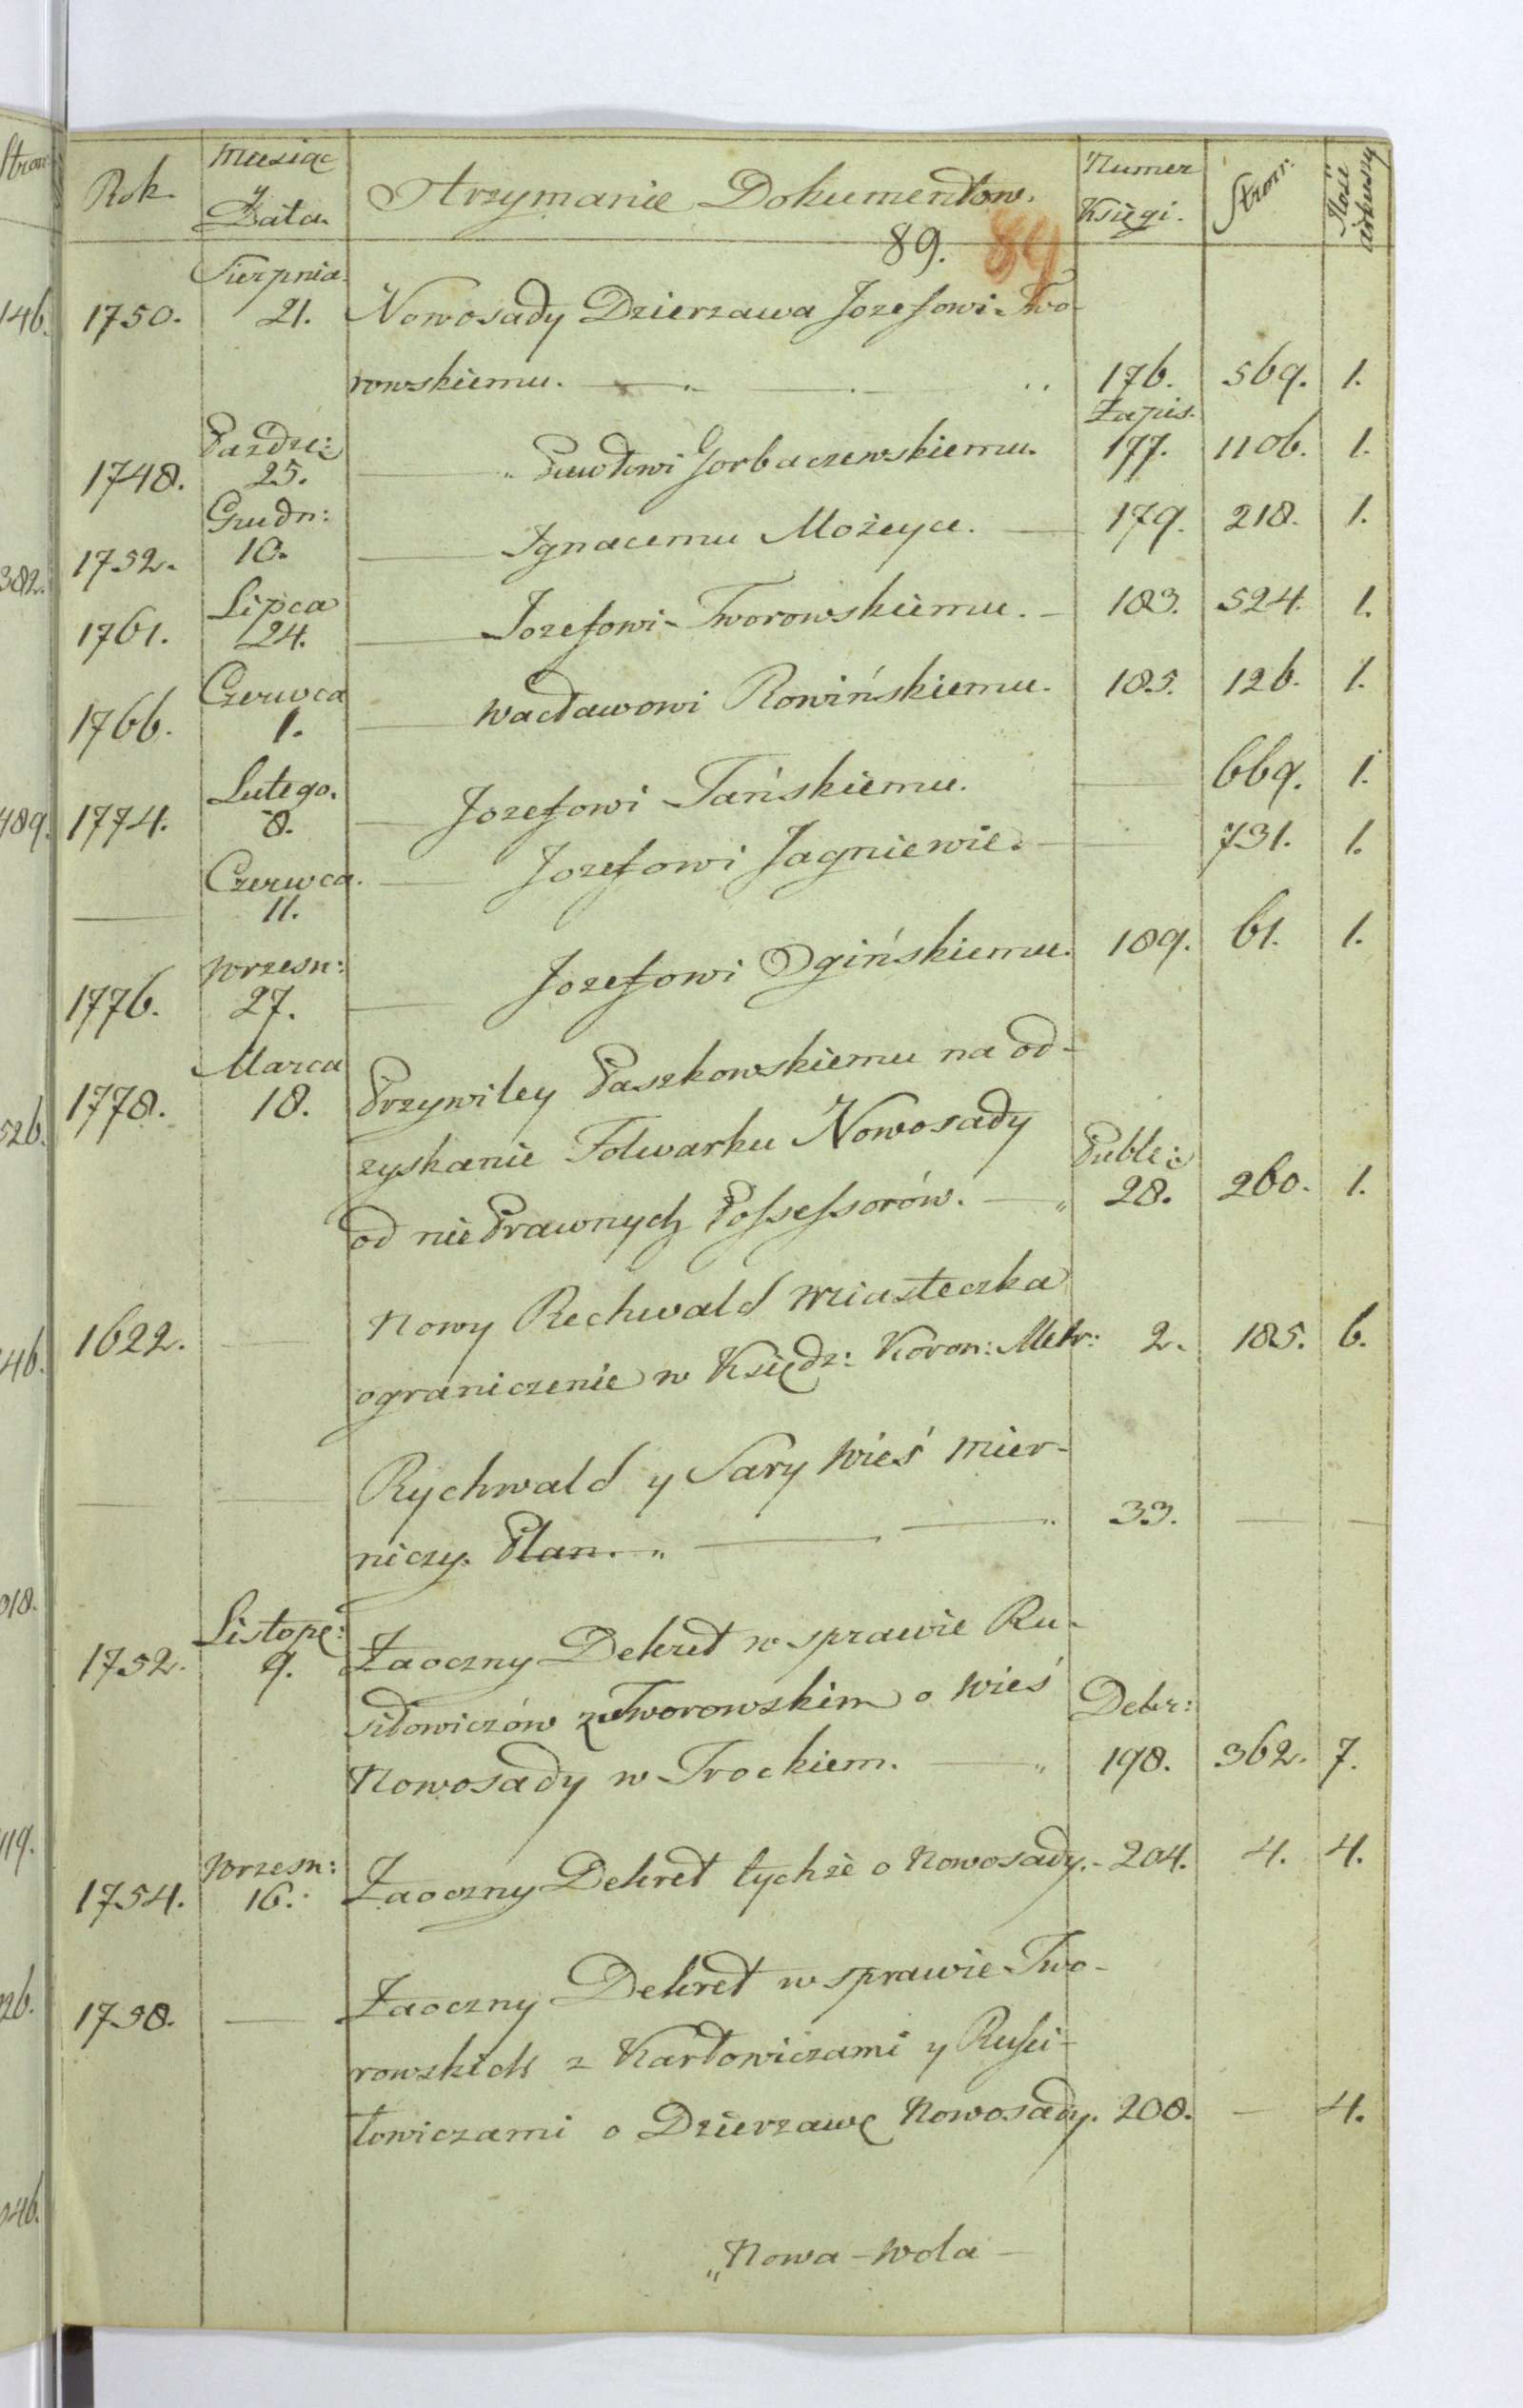 Rok. Miesiąc y Data. Otrzymanie Dokumentow. Numer Księgi. Stron: Ilość arkuszy
89. 89
1750. Sierpnia 21. Nowosady Dzierzawa Jozefowi Two-
rowskiemu. 176. 569. 1.
Zapis.
1748. Pazdz: 25. Pawłowi Gorbaczewskiemu. 177. 1106. 1.
1752. Grudn: 10. Ignacemu Możeyce. 179. 218. 1.
1761. Lipca 24. Jozefowi Tworowskiemu. 183. 524. 1.
1766. Czerwca 1. Wacławowi Rowińskiemu. 185. 126. 1.
1774. Lutego. 8. Jozefowi Tańskiemu. 669. 1.
Czerwca. 11. Jozefowi Jagniewie. 731. 1.
1776. Wrzesn: 27. Jozefowi Ogińskiemu. 189. 61. 1.
1778. Marca 18. Przywiley Paszkowskiemu na od-
zyskanie Folwarku Nowosady
od nie Prawnych Possessorów. Public: 28. 260. 1.
1622. Nowy Rechwald Miasteczka
ograniczenie w Księdz: Koron: Metr: 2. 185. 6.
Rychwald y Sary Wieś Mier-
niczy. Plan. 33.
1752. Listopa: 9. Zaoczny Dekret w sprawie Ru-
siłowiczów z Tworowskim o Wieś
Nowosady w Trockiem. Dekr: 198. 362. 7.
1754. Wrzesn: 16. Zaoczny Dekret tychże o Nowosady. 204. 4. 4.
1758. Zaoczny Dekret w sprawie Two-
rowskich z Karłowiczami y Rusi-
łowiczami o Dzierzawę Nowosady. 208. 4.
„Nowa-Wola-